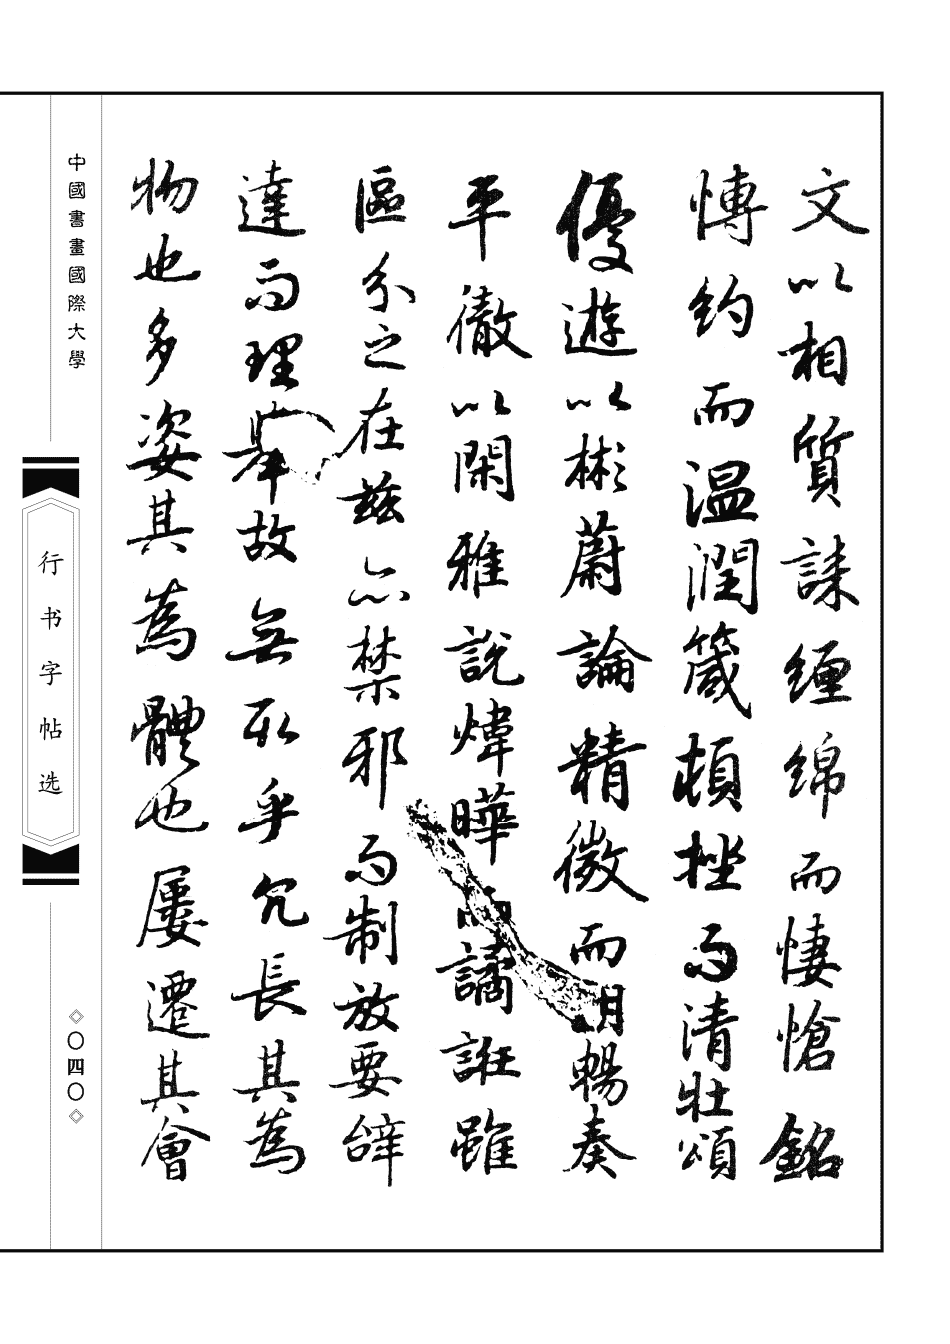 文以相質誄纏綿而悽愴銘
慱約而温潤箴頓挫而清壯頌
優遊以彬蔚論精微而朗暢奏
平徹以閑雅說煒曄而譎誑雖
區分之在茲亦禁邪而制放要辞
達而理舉故無取乎冗長其為
物也多姿其為體也屢遷其會
中國書畫國際大學
行书字帖选
◇〇四〇◇